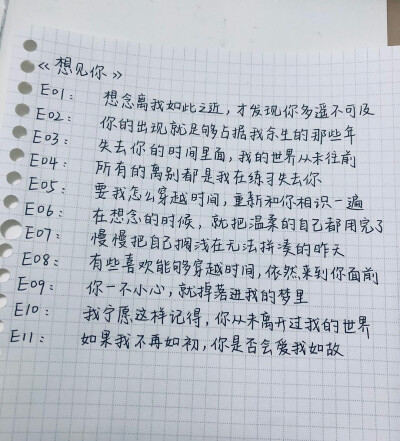 《想见你》
E01： 想念离我如此之近，才发现你多遥不可及
E02： 你的出现就足够占据我余生的那些年
E03： 失去你的时间里面，我的世界从未往前
E04： 所有的离别都是我在练习失去你
E05： 要我怎么穿越时间，重新和你相识一遍
E06： 在想念的时候，就把温柔的自己都用完了
E07： 慢慢把自己搁浅在无法拼凑的昨天
E08： 有些喜欢能够穿越时间，依然来到你面前
E09： 你一不小心，就掉落进我的梦里
E10： 我宁愿这样记得，你从未离开过我的世界
E11： 如果我不再如初，你是否会爱我如故